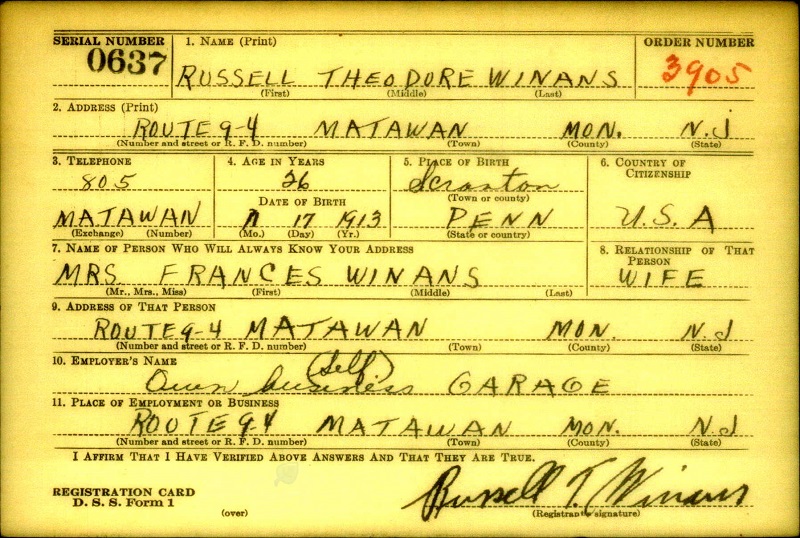 SERIAL NUMBER 1. NAME (Print) ORDER NUMBER
0637 RUSSELL THEODORE WINANS 3905
(First) (Middle) (Last)
2. ADDRESS (Print)
ROUTE 9-4 MATAWAN MON. N.J
(Number and street or R. F. D. number) (Town) (County) (State)
3. TELEPHONE 4. AGE IN YEARS 5. PLACE OF BIRTH 6. COUNTRY OF CITIZENSHIP
805 26 Scranton
DATE OF BIRTH (Town or county)
MATAWAN 17 1913 PENN U.S.A
(Exchange) (Number) (Mo.) (Day) (Yr.) (State or country)
7. NAME OF PERSON WHO WILL ALWAYS KNOW YOUR ADDRESS 8. RELATIONSHIP OF THAT PERSON
MRS. FRANCES WINANS WIFE
(Mr., Mrs., Miss) (First) (Middle) (Last)
9. ADDRESS OF THAT PERSON
ROUTE 9-4 MATAWAN MON. N.J
(Number and street or R. F. D. number) (Town) (County) (State)
10. EMPLOYER'S NAME
(self)
Own business GARAGE
11. PLACE OF EMPLOYMENT OR BUSINESS
ROUTE 9-4 MATAWAN MON. N.J
(Number and street or R. F. D. number) (Town) (County) (State)
I AFFIRM THAT I HAVE VERIFIED ABOVE ANSWERS AND THAT THEY ARE TRUE.
REGISTRATION CARD
D. S. S. Form 1 (over) Russell T. Winans
(Registrant's signature)